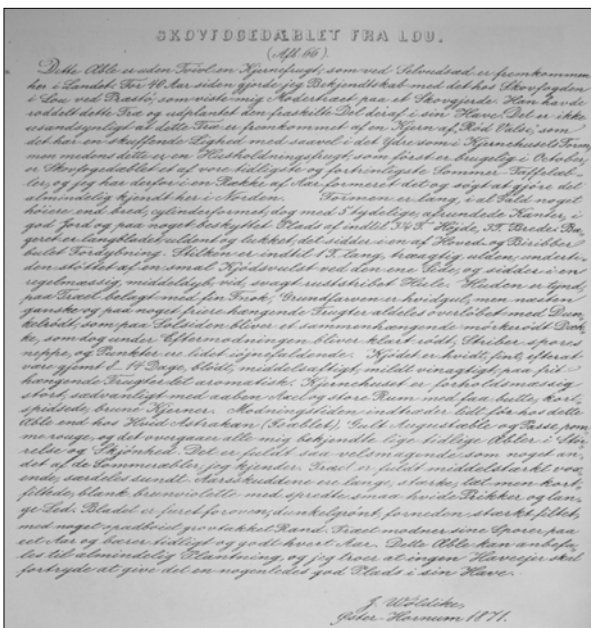 SKOVFOGEDÆBLET FRA LOU.
(Afb. 66).
Dette Æble er uden Tvivl en Kjernefrugt, som ved Selvudsæd er fremkommen
her i Landet. For 40 Aar siden gjorde jeg Bekjendtskab med det hos Skovfogden
i Lou ved Præstø, som viste mig Modertræet paa et Skovgjerde. Han havde
roddelt dette Træ og udplantet den fraskilte Del deraf i sin Have. Det er ikke
usandsynligt at dette Træ er fremkommet af en Kjern af Röd Valse, som
det har en skuffende Lighed med saavel i det Ydre som i Kjernehusets Form,
men medens dette er en Husholdningsfrugt, som först er brugelig i October,
er Skovfogedæblet et af vore tidligste og fortrinligste Sommer-Taffelæb-
ler, og jeg har derfor i en Række af Aar formeret det og sögt at gjöre det
almindelig kjendt her i Norden. Formen er lang, i at Fald noget
höiere end bred, cylinderformet, dog med 5 tydelige, afrundede Kanter, i
god Jord og paa noget beskyttet Plads af indtil 3¼ T. Höjde, 3 T. Brede. Bæ-
geret er langbladet, uldent og lukket, det sidder i en af Hoved- og Biribber
bulet Fordybning. Stilken er indtil 1 T. lang, trægtig, ulden, underti-
den stöttet af en smal Kjödsvulst ved den ene Side, og sidder i en
regelmæssig, middeldyb, vid, svagt ruststribet Hule. Huden er tynd,
paa Træet belagt med fin Fnok, Grundfarven er hvidgul, men næsten
ganske og paa noget friere hængende Frugter aldeles overlöbet med Dun-
kelrödt, som paa Solsiden bliver et sammenhængende mörkerödt Dæk-
ke, som dog under Eftermodningen bliver klart rödt, Striber spores
neppe, og Punkter ere lidet iöjnefaldende. Kjödet er hvidt, fint, efterat
være gjemt i 14 Dage, blödt, middelsaftigt, mildt vinagtigt, paa frit
hængende Frugter let aromatisk. Kjernehuset er forholdsmæssig
stort, sædvanligt med aaben Axel og store Rum med faa butte, kort
spidsede, brune Kjerner. Modningstiden indtræder lidt för hos dette
Æble end hos Hvid Astrakan (Isæblet), Gult Augustæble og Passe pom-
me rouge, og det overgaaer alle mig bekjendte lige tidlige Æbler i Stör-
relse og Skjönhed. Det er fuldt saa velsmagende som noget an-
det af de Sommeræbler, jeg kjender. Træet er fuldt middelstærkt vox-
ende, særdeles sundt. Aarsskuddene ere lange, stærke, tæt men kort-
filtede, blank brunviolette med spredte smaa hvide Prikker og lan-
ge Led. Bladet er furet foroven, dunkelgrönt, forneden stærkt filtet,
med noget opadböiet grovtakket Rand. Træet modner sine Sporer paa
eet Aar og bærer tidligt og godt hvert Aar. Dette Æble kan anbefa-
les til almindelig Plantning, og jeg troer at ingen Haveejer skal
fortryde at give det en nogenledes god Plads i sin Have.
J. Wöldike,
Øster-Hornum 1871.